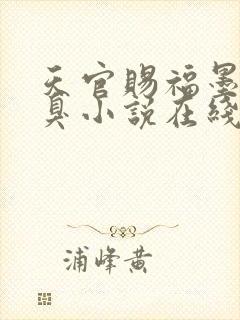 天官赐福墨
臭小说在线
浦峰黄